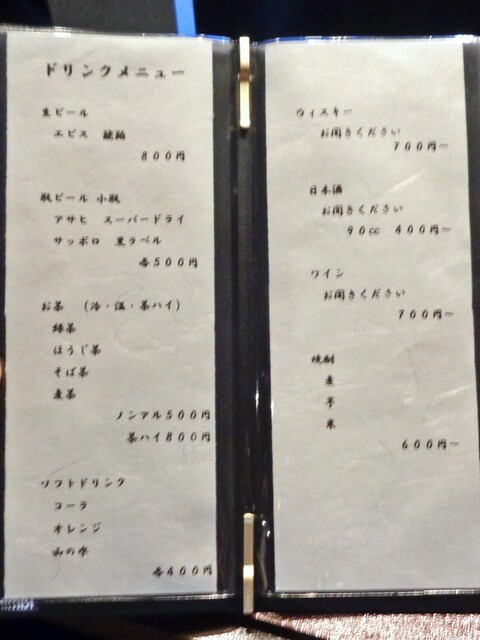 ドリンクメニュー
生ビール
エビス 琥珀
800円
瓶ビール 小瓶
アサヒ スーパードライ
サッポロ 黒ラベル
各500円
お茶 (冷・温・茶ハイ)
緑茶
ほうじ茶
そば茶
麦茶
ノンアル500円
茶ハイ800円
ソフトドリンク
コーラ
オレンジ
山の水
各400円
ウィスキー
お聞きください
700円～
日本酒
お聞きください
90cc 400円～
ワイン
お聞きください
700円～
焼酎
麦
芋
米
600円～